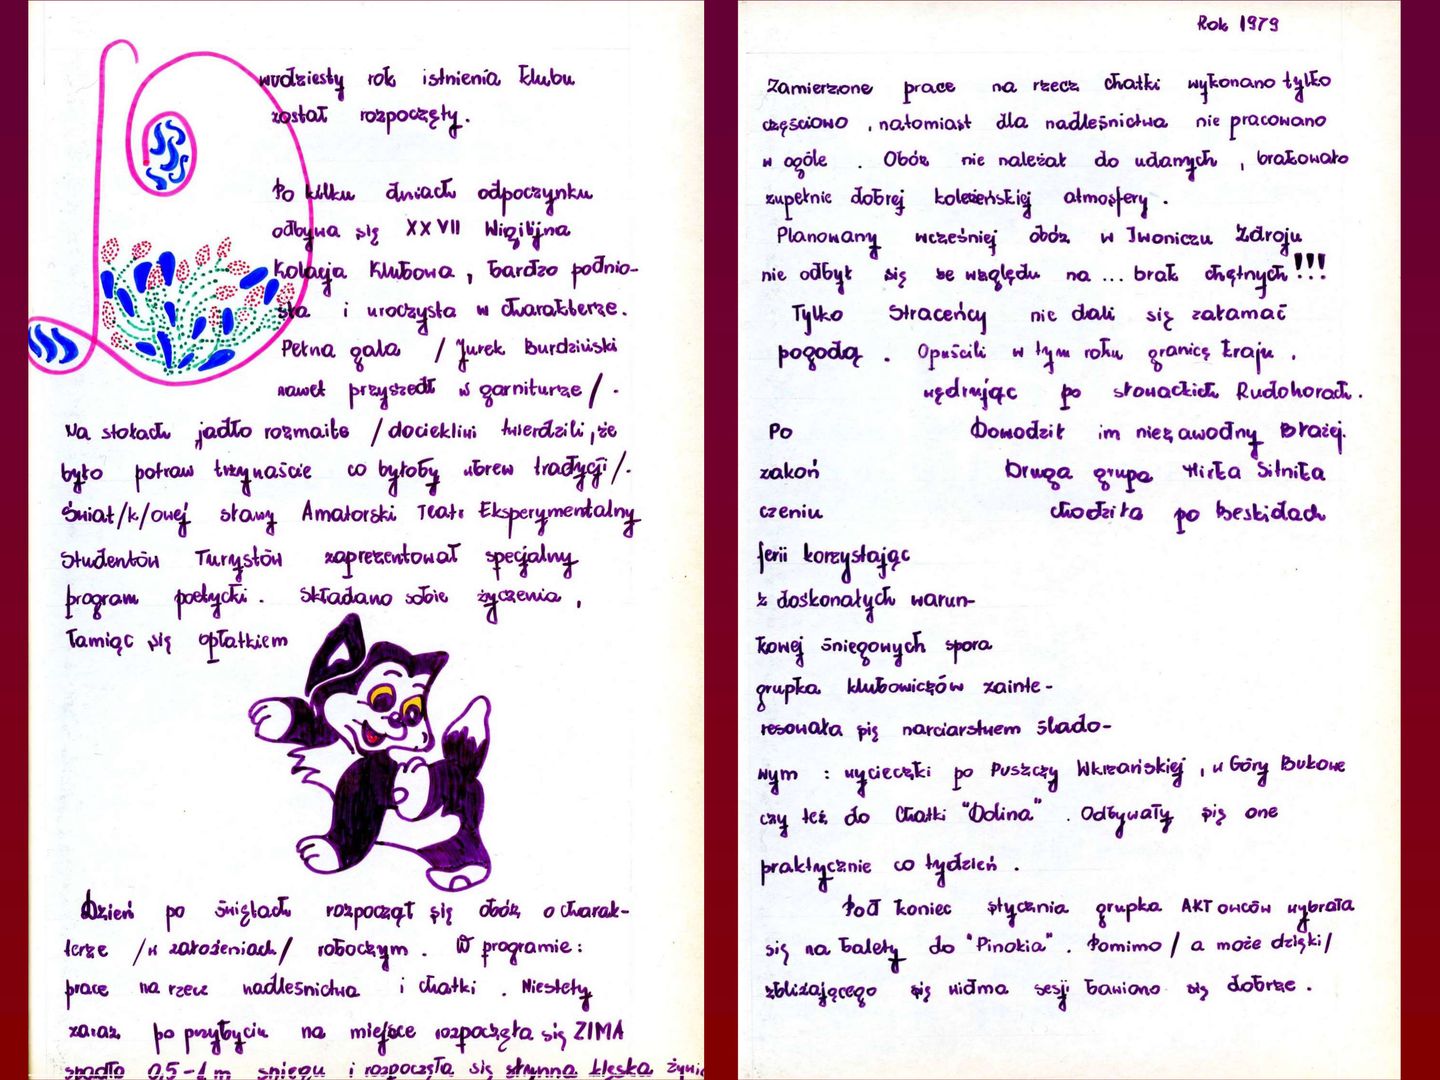 Dwudziesty rok istnienia klubu
został rozpoczęty.
Po kilku dniach odpoczynku
odbywa się XXVII Wigilijna
Kolacja Klubowa, bardzo podnio-
sła i uroczysta w charakterze.
Pełna gala / Jurek Burdziński
nawet przyszedł w garniturze/.
Na stołach jadło rozmaite /dociekliwi twierdzili, że
było potraw trzynaście co byłoby wbrew tradycji/.
Świat/k/owej sławy Amatorski Teatr Eksperymentalny
Studentów Turystów zaprezentował specjalny
program poetycki. Składano sobie życzenia,
łamiąc się opłatkiem
Dzień po świętach rozpoczął się obóz o charak-
terze /w założeniach/ roboczym. W programie:
prace na rzecz nadleśnictwa i chatki. Niestety
zaraz po przybyciu na miejsce rozpoczęła się ZIMA
spadło 0,5-1 m śniegu i rozpoczęła się słynna klęska
Rok 1979
Zamierzone prace na rzecz chatki wykonano tylko
częściowo, natomiast dla nadleśnictwa nie pracowano
w ogóle. Obóz nie należał do udanych, brakowało
zupełnie dobrej koleżeńskiej atmosfery.
Planowany wcześniej obóz w Iwoniczu Zdroju
nie odbył się ze względu na ... brak chętnych!!!
Tylko Straceńcy nie dali się załamać
pogodą. Opuścili w tym roku granicę kraju,
wędrując po słowackich Rudohorach.
Po Dowodził im niezawodny Błażej.
zakoń Druga grupa Mirka Sitnika
czeniu chodziła po Beskidach
ferii korzystając
z doskonałych warun-
kowej śniegowych spora
grupka klubowiczów zainte-
resowała się narciarstwem ślado-
wym : wycieczki po Puszczy Wkrzańskiej, w Góry Bukowe
czy też do Chatki "Dolina". Odbywały się one
praktycznie co tydzień.
Pod koniec stycznia grupka AKTowców wybrała
się na balety do "Pinokia". Pomimo / a może dzięki/
zbliżającego się widma sesji bawiono się dobrze.